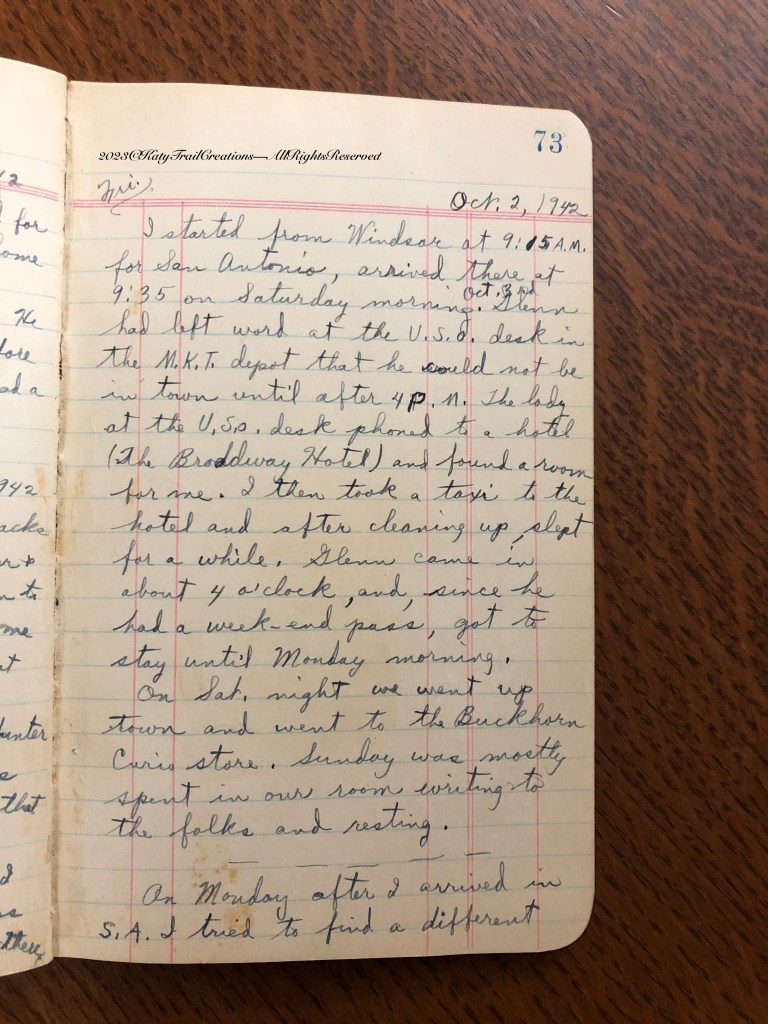 12
for
ome
He
fore
ad a
942
acks
r +
n to
me
t
unter
s
that
d
s
them
73
2023@KatyTrailCreations—AllRightsReserved
Fri.
Oct. 2, 1942
I started from Windsor at 9:15 A.M.
for San Antonio, arrived there at
Oct. 3rd
9:35 on Saturday morning. Glenn
had left word at the U.S.O. desk in
the M.K.T. depot that he would not be
in town until after 4 P.M. The lady
at the U.S.O. desk phoned to a hotel
(The Broadway Hotel) and found a room
for me. I then took a taxi to the
hotel and after cleaning up, slept
for a while. Glenn came in
about 4 o'clock, and, since he
had a week-end pass, got to
stay until Monday morning.
On Sat. night we went up
town and went to the Buckhorn
Curio store. Sunday was mostly
spent in our room writing to
the folks and resting.
On Monday after I arrived in
S.A. I tried to find a different